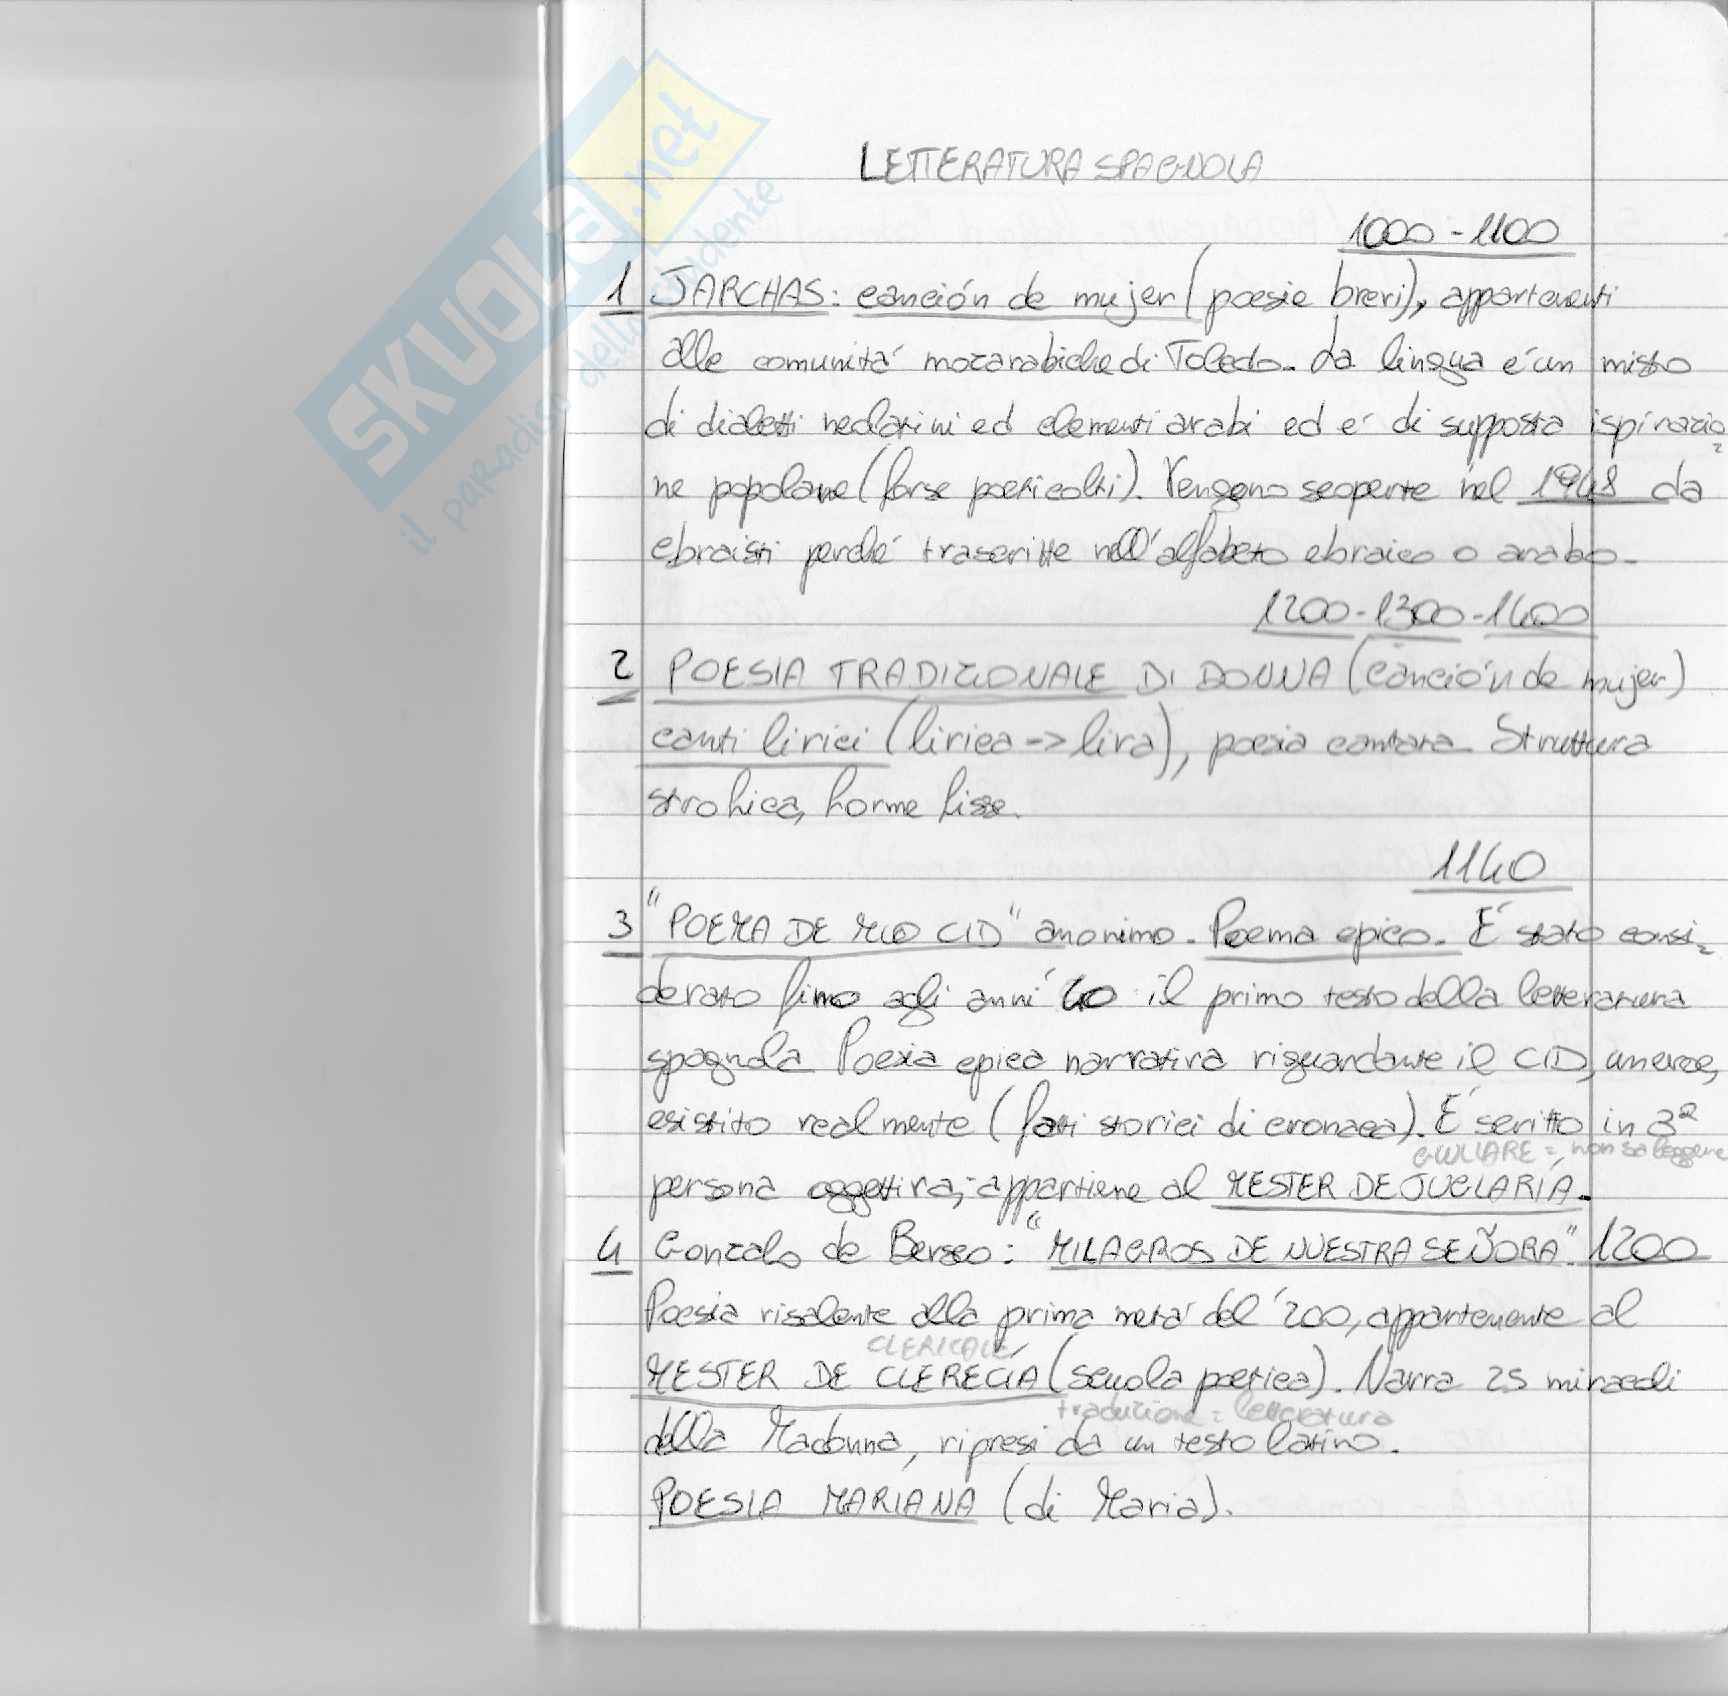 SKUOLA.net
il paradiso dello studente
LETTERATURA SPAGNOLA
1000 - 1100
1 JARCHAS: canción de mujer (poesie brevi), appartenenti
alle comunità mozarabiche di Toledo. La lingua è un misto
di dialetti neolatini ed elementi arabi ed è di supposta ispirazio
ne popolare (forse poeti colti). Vengono scoperte nel 1948 da
ebraisti perché trascritte nell'alfabeto ebraico o arabo.
1200 - 1300 - 1400
2 POESIA TRADIZIONALE DI DONNA (canción de mujer)
canti lirici (lirica -> lira), poesia cantata. Struttura
strofica, forme fisse.
1140
3 "POEMA DE MIO CID" anonimo. Poema epico. É stato consi
derato fino agli anni '40 il primo testo della letteratura
spagnola. Poesia epica narrativa riguardante il CID, un eroe,
esistito realmente (fatti storici di cronaca). É scritto in 3ª
GIULLARE = non sa leggere
persona oggettiva, appartiene al MESTER DE JUGLARÍA.
4 Gonzalo de Berseo: "MILAGROS DE NUESTRA SEÑORA". 1200
Poesia risalente alla prima metà del '200, appartenente al
CLERICALE
MESTER DE CLERECÍA (scuola poetica). Narra 25 miracoli
traduzione = letteratura
della Madonna, ripresi da un testo latino.
POESIA MARIANA (di Maria).